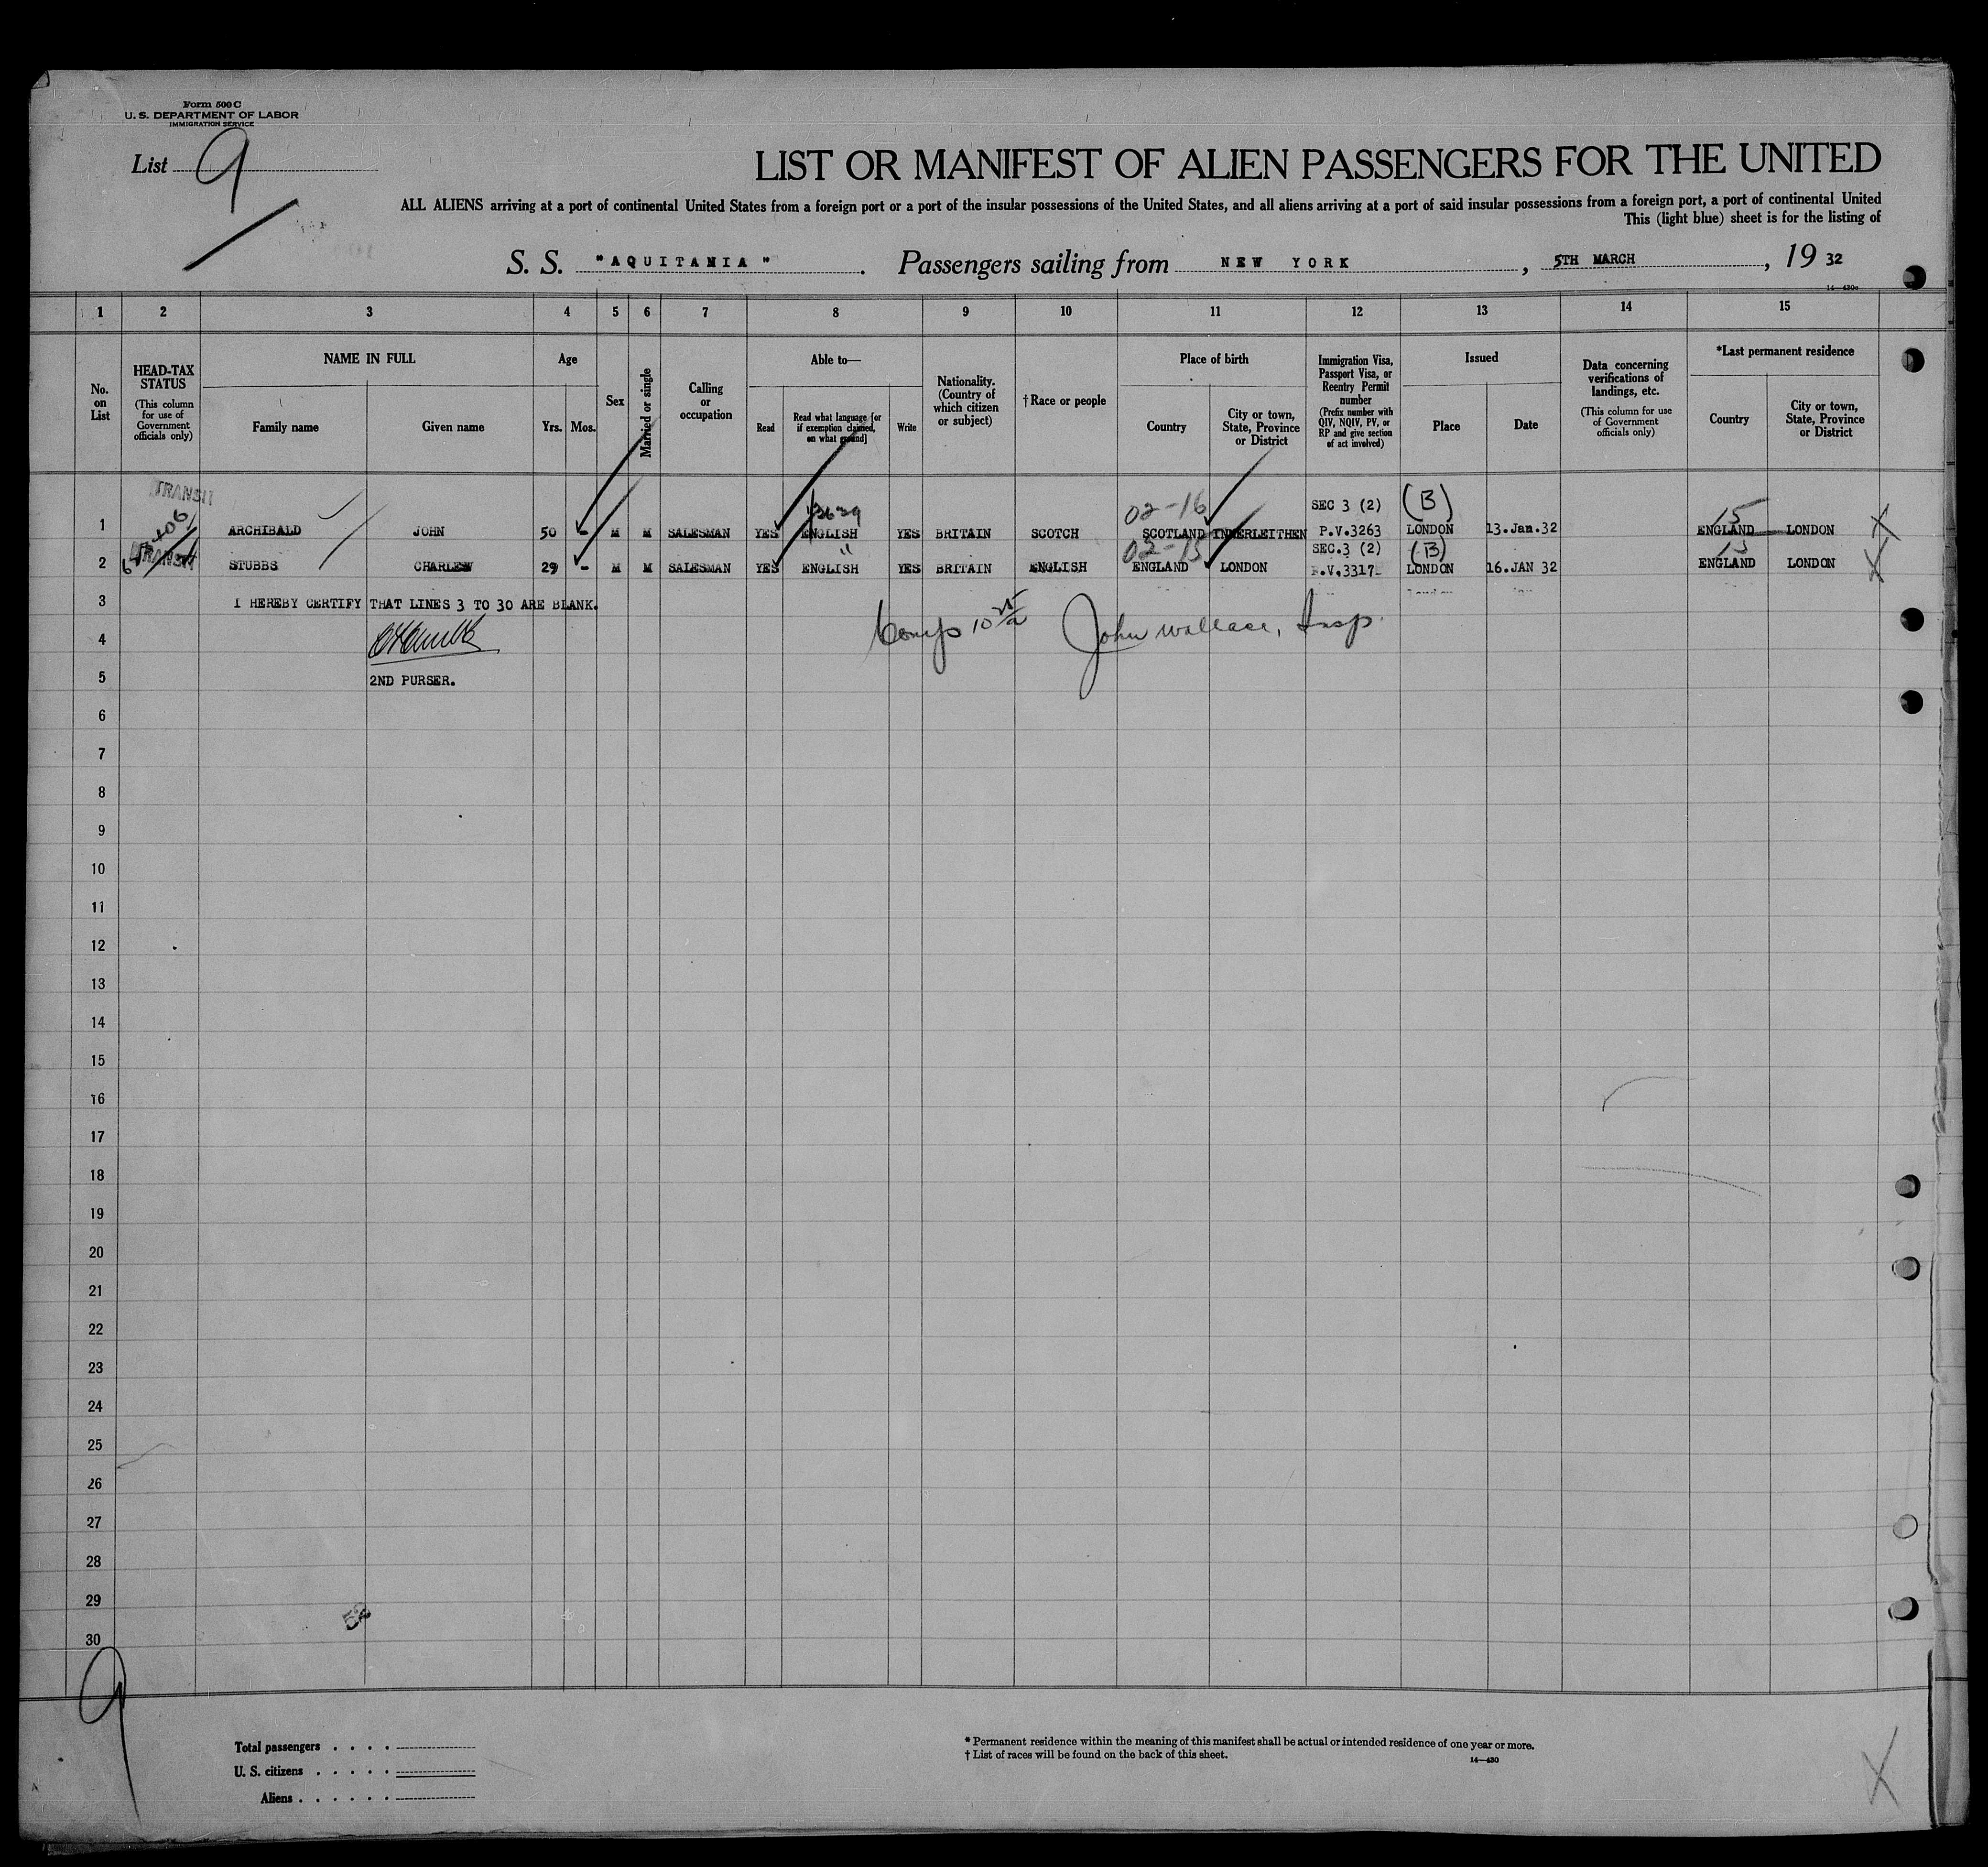 Form 500 C
U. S. DEPARTMENT OF LABOR
IMMIGRATION SERVICE
List 9
LIST OR MANIFEST OF ALIEN PASSENGERS FOR THE UNITED
ALL ALIENS arriving at a port of continental United States from a foreign port or a port of the insular possessions of the United States, and all aliens arriving at a port of said insular possessions from a foreign port, a port of continental United
This (light blue) sheet is for the listing of
S. S. "AQUITANIA". Passengers sailing from NEW YORK, 5TH MARCH, 19 32
14—430a
1 2 3 4 5 6 7 8 9 10 11 12 13 14 15
No. on List
HEAD-TAX STATUS
(This column for use of Government officials only)
NAME IN FULL
Family name
Given name
Age
Yrs.
Mos.
Sex
Married or single
Calling or occupation
Able to—
Read
Read what language [or if exemption claimed, on what ground]
Write
Nationality. (Country of which citizen or subject)
†Race or people
Place of birth
Country
City or town, State, Province or District
Immigration Visa, Passport Visa, or Reentry Permit number
(Prefix number with QIV, NQIV, PV, or RP and give section of act involved)
Issued
Place
Date
Data concerning verifications of landings, etc.
(This column for use of Government officials only)
*Last permanent residence
Country
City or town, State, Province or District
TRANSIT
02-16 SEC 3 (2) (B) 15
1 ARCHIBALD JOHN 50 - M M SALESMAN YES ENGLISH YES BRITAIN SCOTCH SCOTLAND INNERLEITHEN P.V.3263 LONDON 13.Jan.32 ENGLAND LONDON X
TRANSIT 02-15 SEC.3 (2) (B) 15
2 STUBBS CHARLES 29 - M M SALESMAN YES ENGLISH YES BRITAIN ENGLISH ENGLAND LONDON P.V.3317 LONDON 16.JAN 32 ENGLAND LONDON X
3 I HEREBY CERTIFY THAT LINES 3 TO 30 ARE BLANK.
4 John Wallace, Insp.
5 2ND PURSER.
6
7
8
9
10
11
12
13
14
15
16
17
18
19
20
21
22
23
24
25
26
27
28
29
30
9
Total passengers
U. S. citizens
Aliens
* Permanent residence within the meaning of this manifest shall be actual or intended residence of one year or more.
† List of races will be found on the back of this sheet.
14—430
X